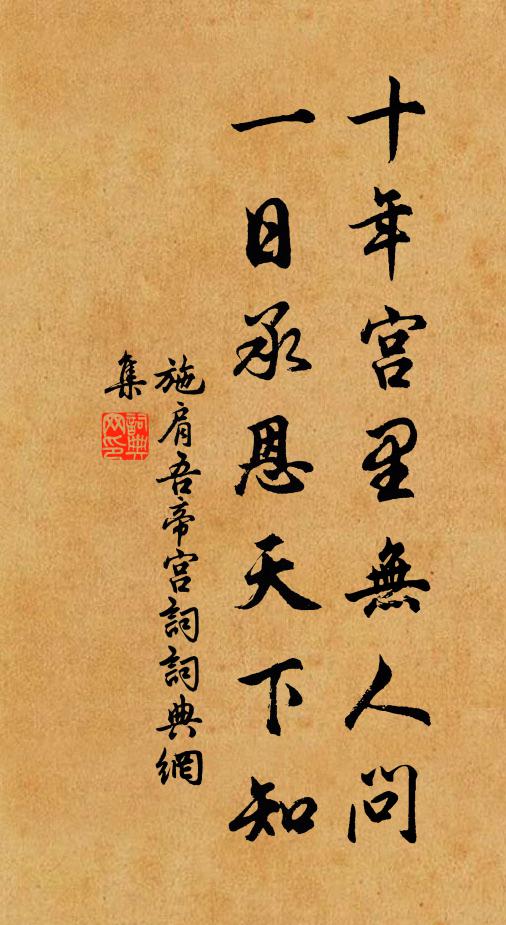 十年宫里無人問
一日承恩天下知
施肩吾帝宫詞詞典網
集
詞典网印